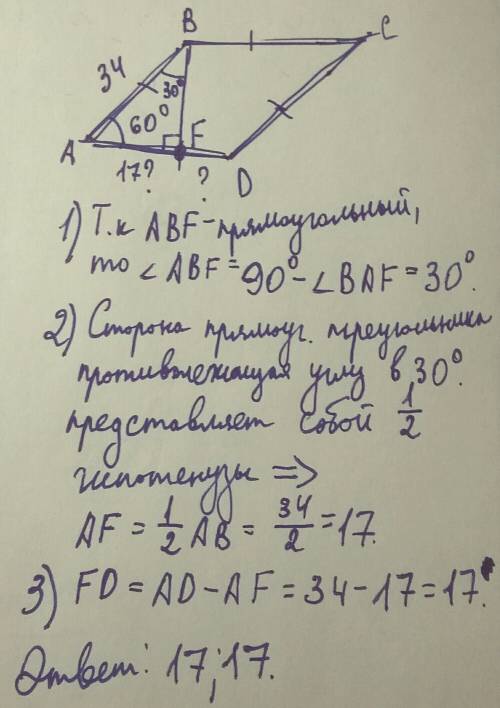 B
C
34
30°
60°
F
A
17?
?
D
1) Т.к ABF - прямоугольный,
то ∠ABF = 90° - ∠BAF = 30°.
2) Сторона прямоуг. треугольника
противолежащая углу в 30°.
представляет собой 1/2
гипотенузы =>
AF = 1/2 AB = 34/2 = 17.
3) FD = AD - AF = 34 - 17 = 17.
Ответ: 17; 17.